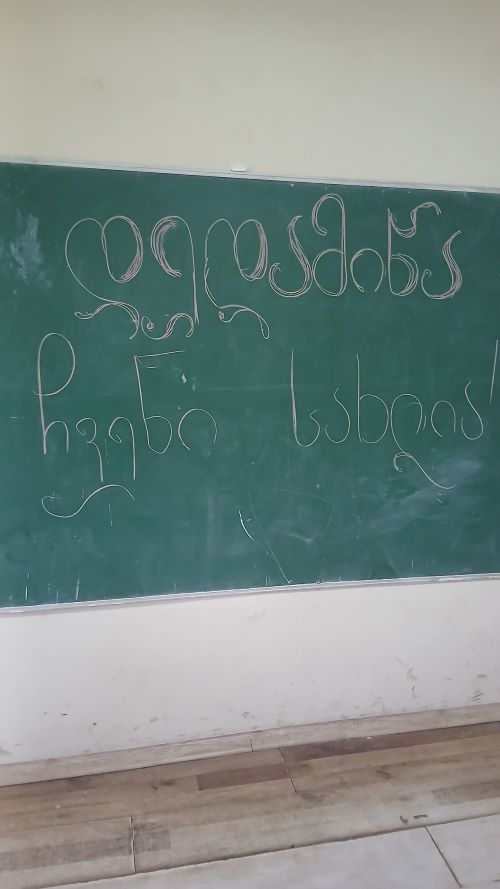 დედამიწა
ჩვენი სახლია!